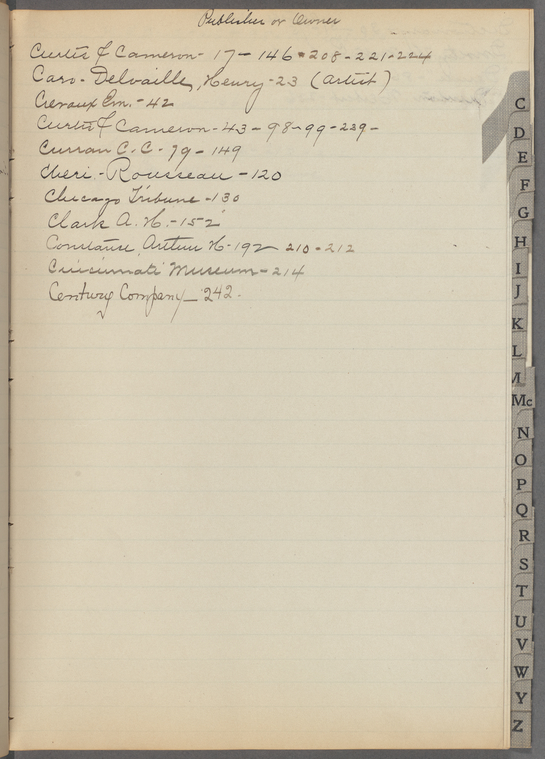 Publisher or Owner
Curtis & Cameron - 17 - 146 - 208 - 221 - 224
Caro-Delvaille, Henry - 23 (artist)
Crevaux Em. - 42
Curtis & Cameron - 43 - 98 - 99 - 239 -
Curran C. C. - 79 - 149
Cheri-Rousseau - 120
Chicago Tribune - 130
Clark A. H. - 152
Constance, Arthur H - 192 210 - 212
Cincinnati Museum - 214
Century Company - 242.
C
D
E
F
G
H
I
J
K
L
M
Mc
N
O
P
Q
R
S
T
U
V
W
Y
Z